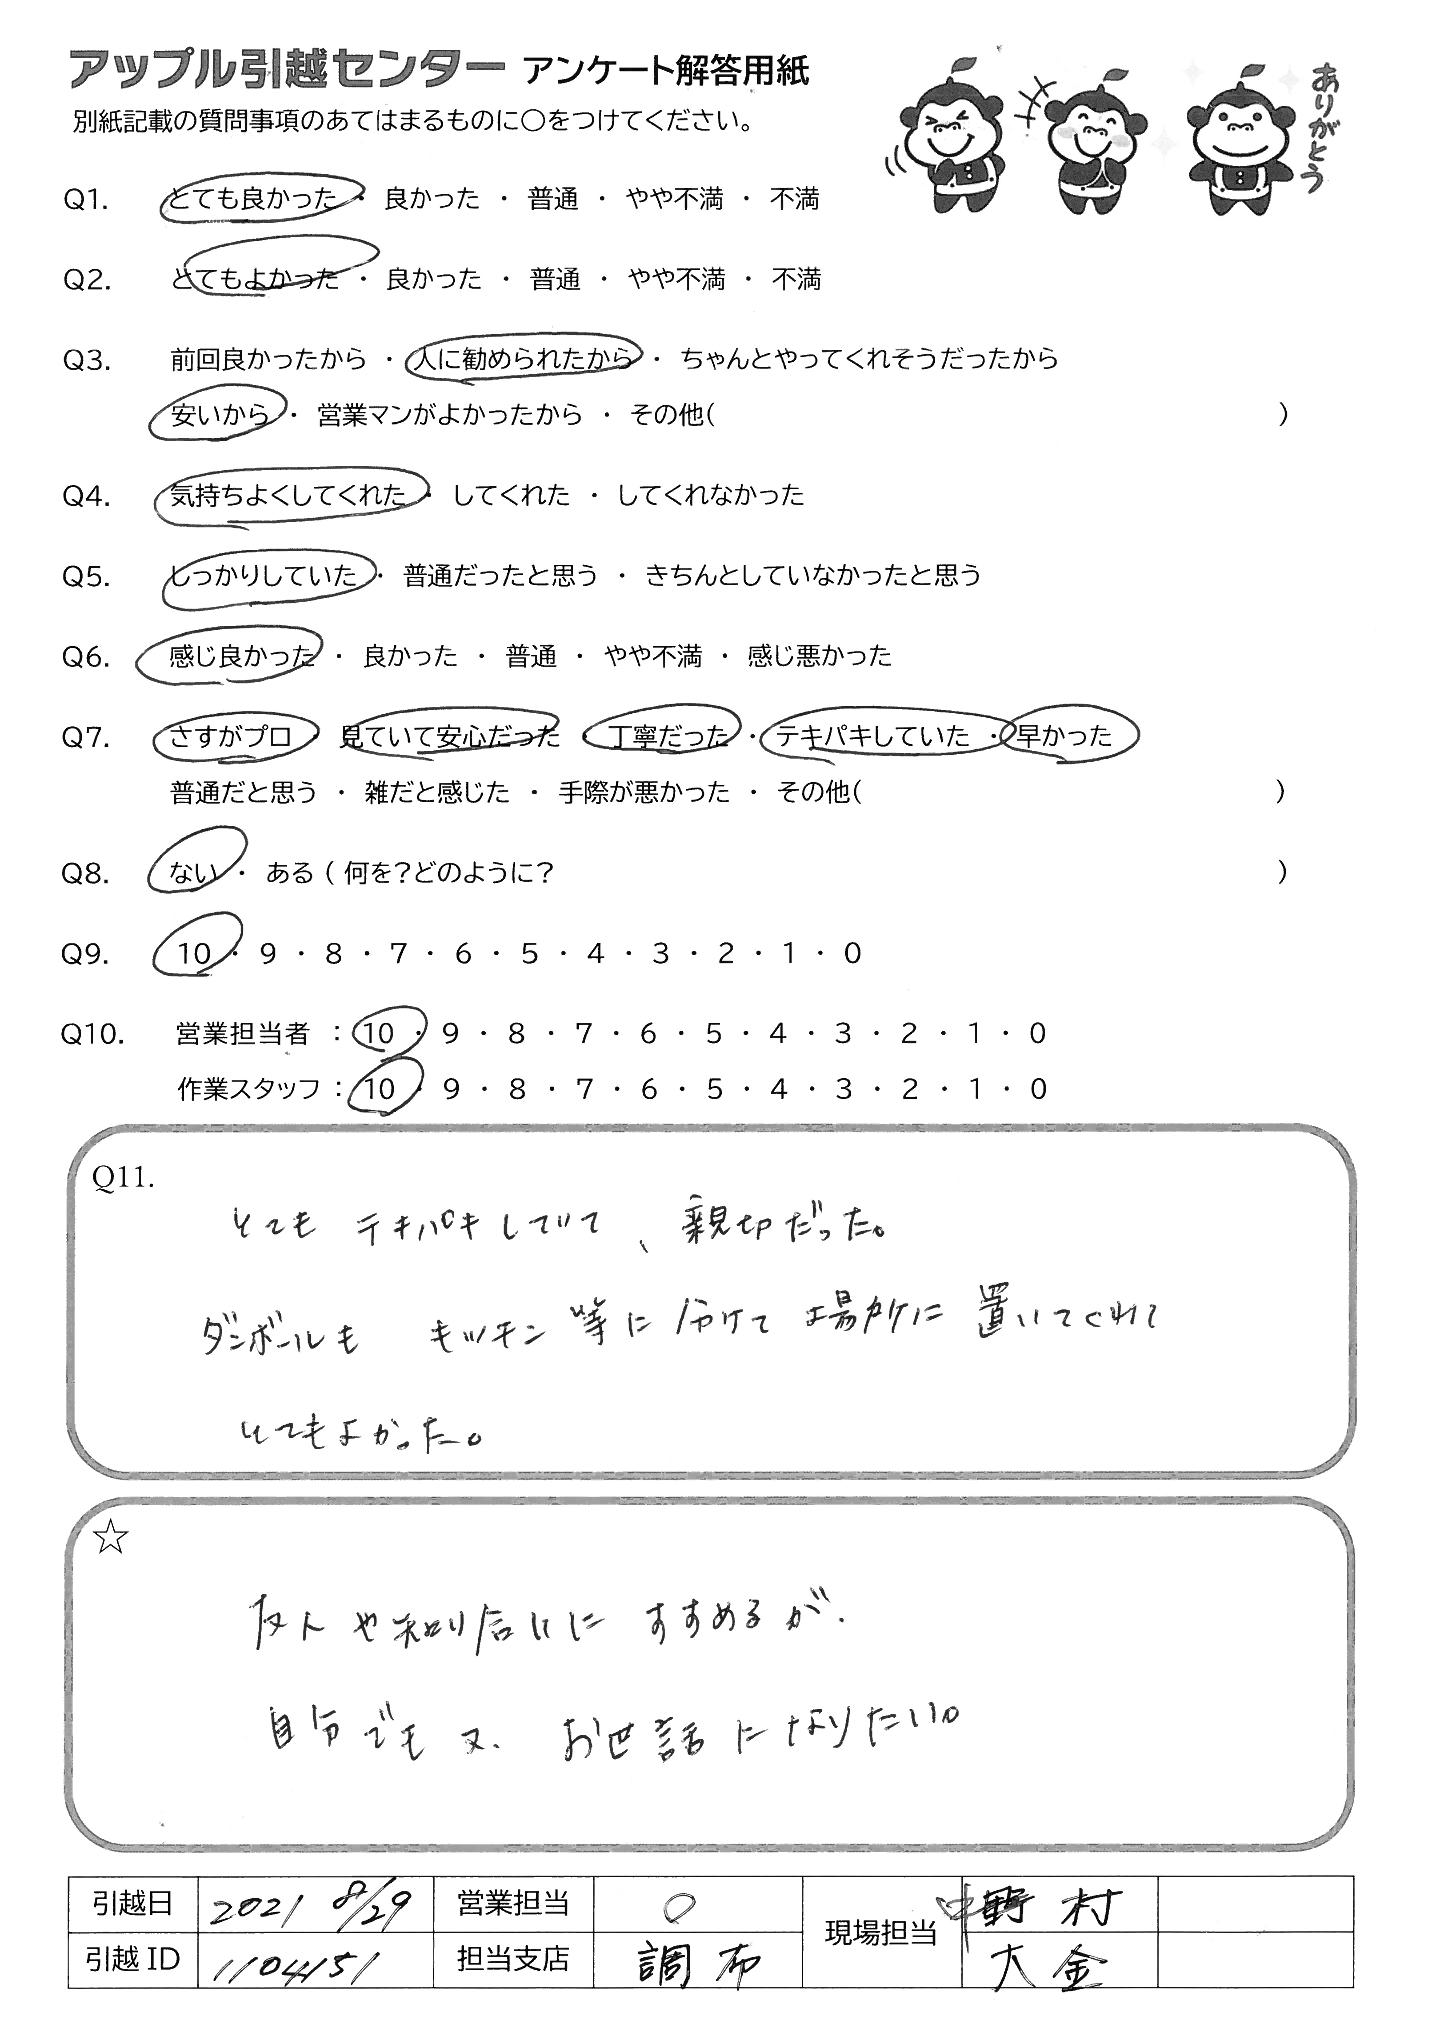 アップル引越センター アンケート解答用紙
ありがとう
別紙記載の質問事項のあてはまるものに○をつけてください。
Q1. とても良かった ・ 良かった ・ 普通 ・ やや不満 ・ 不満
Q2. とてもよかった ・ 良かった ・ 普通 ・ やや不満 ・ 不満
Q3. 前回良かったから ・ 人に勧められたから ・ ちゃんとやってくれそうだったから
安いから ・ 営業マンがよかったから ・ その他( )
Q4. 気持ちよくしてくれた ・ してくれた ・ してくれなかった
Q5. しっかりしていた ・ 普通だったと思う ・ きちんとしていなかったと思う
Q6. 感じ良かった ・ 良かった ・ 普通 ・ やや不満 ・ 感じ悪かった
Q7. さすがプロ ・ 見ていて安心だった ・ 丁寧だった ・ テキパキしていた ・ 早かった
普通だと思う ・ 雑だと感じた ・ 手際が悪かった ・ その他( )
Q8. ない ・ ある ( 何を?どのように? )
Q9. 10 ・ 9 ・ 8 ・ 7 ・ 6 ・ 5 ・ 4 ・ 3 ・ 2 ・ 1 ・ 0
Q10. 営業担当者 : 10 ・ 9 ・ 8 ・ 7 ・ 6 ・ 5 ・ 4 ・ 3 ・ 2 ・ 1 ・ 0
作業スタッフ : 10 ・ 9 ・ 8 ・ 7 ・ 6 ・ 5 ・ 4 ・ 3 ・ 2 ・ 1 ・ 0
Q11.
とても テキパキしていて、親切だった。
ダンボールも キッチン等に分けて場所に置いてくれて
とてもよかった。
☆
友人や知り合いにすすめるが、
自分でも又、お世話になりたい。
引越日 2021 8/29 営業担当 ○ 現場担当 村
引越 ID 1104151 担当支店 調布 大金